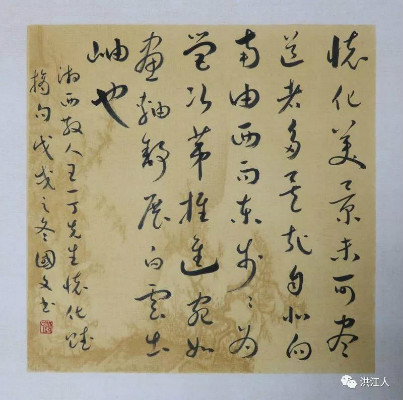 怀化美景未可尽
道者多矣尤自北向
南由西而东步步为
营次第推进宛如
画轴舒展白云出
岫也
湘西散人王一丁先生怀化赋
摘句戊戌之冬国文书
洪江人